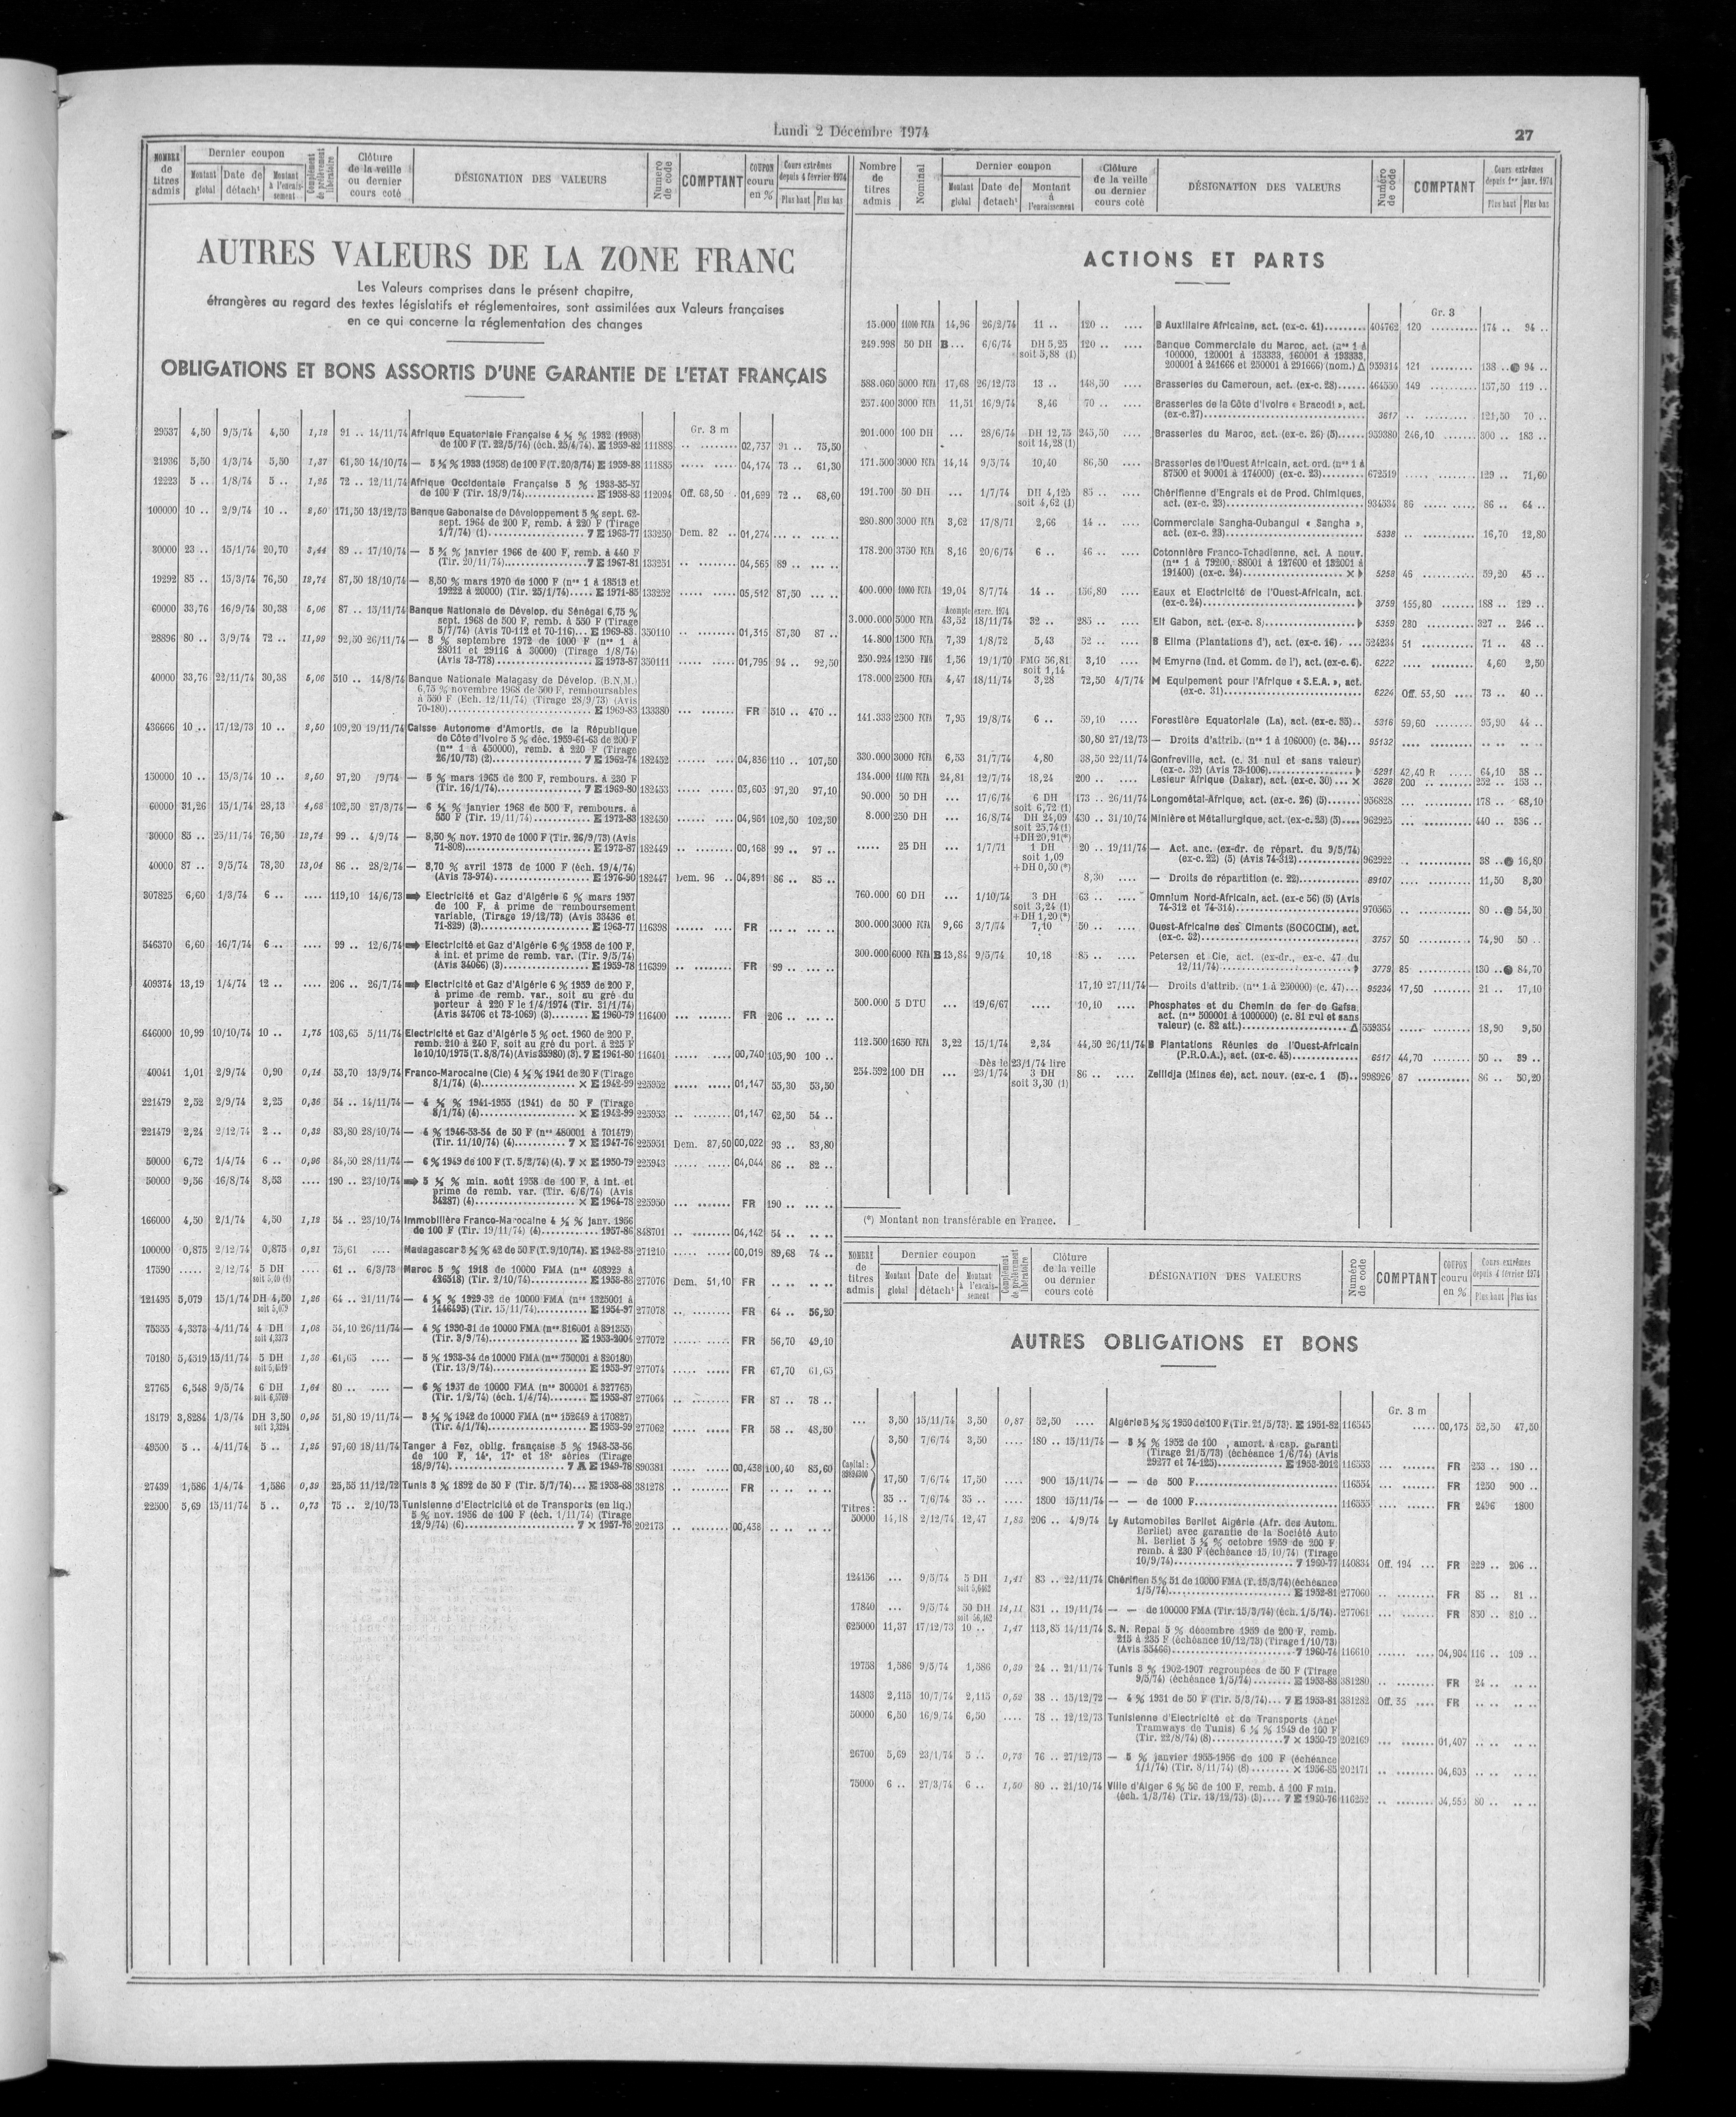 Lundi 2 Décembre 1974
27
NOMBRE de titres admis
Dernier coupon
Montant global
Date de détacht
Montant à l'encaissement
Complément de prélèvement libératoire
Clôture de la veille ou dernier cours coté
DÉSIGNATION DES VALEURS
Numéro de code
COMPTANT
COUPON couru en %
Cours extrêmes depuis 4 février 1974
Plus haut
Plus bas
AUTRES VALEURS DE LA ZONE FRANC
Les Valeurs comprises dans le présent chapitre,
étrangères au regard des textes législatifs et réglementaires, sont assimilées aux Valeurs françaises
en ce qui concerne la réglementation des changes
OBLIGATIONS ET BONS ASSORTIS D'UNE GARANTIE DE L'ETAT FRANÇAIS
Gr. 3 m
29537 4,50 9/5/74 4,50 1,12 91 .. 14/11/74 Afrique Equatoriale Française 4 ½ % 1932 (1958)
de 100 F (T. 22/5/74) (éch. 25/4/74). E 1959-82 111883 .. ........ 02,737 91 .. 75,50
21936 5,50 1/3/74 5,50 1,37 61,30 14/10/74 — 5 ½ % 1933 (1958) de 100 F (T.20/3/74) E 1959-88 111885 ..... ..... 04,174 73 .. 61,30
12223 5 .. 1/8/74 5 .. 1,25 72 .. 12/11/74 Afrique Occidentale Française 5 % 1933-35-37
de 100 F (Tir. 18/9/74)............... E 1958-83 112094 Off. 68,50 . 01,699 72 .. 68,60
100000 10 .. 2/9/74 10 .. 2,50 171,50 13/12/73 Banque Gabonaise de Développement 5 % sept. 62-
sept. 1964 de 200 F, remb. à 220 F (Tirage
1/7/74) (1)..................... 7 E 1963-77 133250 Dem. 82 .. 01,274 ... .. ... ..
30000 23 .. 15/1/74 20,70 3,44 89 .. 17/10/74 — 5 ¾ % janvier 1966 de 400 F, remb. à 440 F
(Tir. 20/11/74).................... 7 E 1967-81 133251 .. ........ 04,565 89 .. ... ..
19292 85 .. 15/3/74 76,50 12,74 87,50 18/10/74 — 8,50 % mars 1970 de 1000 F (nos 1 à 18513 et
19222 à 20000) (Tir. 25/1/74)..... E 1971-85 133252 .. ........ 05,512 87,50 ... ..
60000 33,76 16/9/74 30,38 5,06 87 .. 15/11/74 Banque Nationale de Dévelop. du Sénégal 6,75 %
sept. 1968 de 500 F, remb. à 550 F (Tirage
5/7/74) (Avis 70-112 et 70-116)... E 1969-83 350110 .. ........ 01,315 87,30 87 ..
28896 80 .. 3/9/74 72 .. 11,99 92,50 26/11/74 — 8 % septembre 1972 de 1000 F (nos 1 à
28011 et 29116 à 30000) (Tirage 1/8/74)
(Avis 73-778)..................... E 1973-87 350111 ..... ..... 01,795 94 .. 92,50
40000 33,76 22/11/74 30,38 5,06 510 .. 14/8/74 Banque Nationale Malagasy de Dévelop. (B.N.M.)
6,75 % novembre 1968 de 500 F, remboursables
à 550 F (Ech. 12/11/74) (Tirage 28/9/73) (Avis
70-180)........................... E 1969-83 133380 ... ....... FR 510 .. 470 ..
436666 10 .. 17/12/73 10 .. 2,50 109,20 19/11/74 Caisse Autonome d'Amortis. de la République
de Côte d'Ivoire 5 % déc. 1959-61-63 de 200 F
(nos 1 à 450000), remb. à 220 F (Tirage
26/10/73) (2).................... 7 E 1962-74 182452 .... ...... 04,836 110 .. 107,50
150000 10 .. 15/3/74 10 .. 2,50 97,20 /9/74 — 5 % mars 1965 de 200 F, rembours. à 230 F
(Tir. 16/1/74)................... 7 E 1969-80 182453 .. ........ 03,603 97,20 97,10
60000 31,26 15/1/74 28,13 4,68 102,50 27/3/74 — 6 ¼ % janvier 1968 de 500 F, rembours. à
550 F (Tir. 19/11/74)............. E 1972-83 182450 ..... ..... 04,961 102,50 102,30
30000 85 .. 25/11/74 76,50 12,74 99 .. 4/9/74 — 8,50 % nov. 1970 de 1000 F (Tir. 26/9/73) (Avis
71-808)........................... E 1973-87 182449 .. ........ 00,168 99 .. 97 ..
40000 87 .. 9/5/74 78,30 13,04 86 .. 28/2/74 — 8,70 % avril 1973 de 1000 F (éch. 19/4/74)
(Avis 73-974)..................... E 1976-90 182447 Dem. 96 .. 04,891 86 .. 85 ..
307825 6,60 1/3/74 6 .. .... 119,10 14/6/73 ➡ Electricité et Gaz d'Algérie 6 % mars 1957
de 100 F, à prime de remboursement
variable, (Tirage 19/12/73) (Avis 33436 et
71-829) (3)....................... E 1963-77 116398 ...... .... FR ... .. ... ..
546370 6,60 16/7/74 6 .. .... 99 .. 12/6/74 ➡ Electricité et Gaz d'Algérie 6 % 1958 de 100 F,
à int. et prime de remb. var. (Tir. 9/5/74)
(Avis 34066) (3).................. E 1959-78 116399 .. ........ FR 99 .. ... ..
409374 13,19 1/4/74 12 .. .... 206 .. 26/7/74 ➡ Electricité et Gaz d'Algérie 6 % 1959 de 200 F,
à prime de remb. var., soit au gré du
porteur à 220 F le 1/4/1974 (Tir. 31/1/74)
(Avis 34706 et 73-1069) (3)....... E 1960-79 116400 ... ....... FR 206 .. ... ..
646000 10,99 10/10/74 10 .. 1,75 103,65 5/11/74 Electricité et Gaz d'Algérie 5 % oct. 1960 de 200 F,
remb. 210 à 240 F, soit au gré du port. à 225 F
le 10/10/1975 (T. 8/8/74) (Avis 35980) (3). 7 E 1961-80 116401 ..... ..... 00,740 105,90 100 ..
40041 1,01 2/9/74 0,90 0,14 53,70 13/9/74 Franco-Marocaine (Cie) 4 ½ % 1941 de 20 F (Tirage
8/1/74) (4)..................... × E 1942-99 225952 ..... ..... 01,147 55,30 53,50
221479 2,52 2/9/74 2,25 0,36 54 .. 14/11/74 — 4 ½ % 1941-1955 (1941) de 50 F (Tirage
8/1/74) (4)..................... × E 1942-99 225953 .. ........ 01,147 62,50 54 ..
221479 2,24 2/12/74 2 .. 0,32 83,80 28/10/74 — 4 % 1946-53-54 de 50 F (nos 480001 à 701479)
(Tir. 11/10/74) (4)........... 7 × E 1947-76 225951 Dem. 87,50 00,022 93 .. 83,80
50000 6,72 1/4/74 6 .. 0,96 84,50 28/11/74 — 6 % 1949 de 100 F (T. 5/2/74) (4). 7 × E 1950-79 225943 ..... ..... 04,044 86 .. 82 ..
50000 9,56 16/8/74 8,53 .... 190 .. 23/10/74 ➡ 5 ½ % min. août 1958 de 100 F, à int. et
prime de remb. var. (Tir. 6/6/74) (Avis
34287) (4)...................... × E 1964-78 225950 ... ....... FR 190 .. ... ..
166000 4,50 2/1/74 4,50 1,12 54 .. 23/10/74 Immobilière Franco-Marocaine 4 ½ % janv. 1956
de 100 F (Tir. 19/11/74) (4)........... 1957-86 848701 .. ........ 04,142 54 .. .. ..
100000 0,875 2/12/74 0,875 0,21 75,61 .... Madagascar 3 ½ % 42 de 50 F (T. 9/10/74). E 1942-83 271210 ..... ..... 00,019 89,68 74 ..
17590 ..... 2/12/74 5 DH .... 61 .. 6/3/73 Maroc 5 % 1918 de 10000 FMA (nos 408929 à
426518) (Tir. 2/10/74)............ E 1958-88 277076 Dem. 51,10 FR .. .. .. ..
121495 5,079 15/1/74 DH 4,50 soit 5,079 1,26 64 .. 21/11/74 — 4 ½ % 1929-32 de 10000 FMA (nos 1325001 à
1446495) (Tir. 15/11/74).......... E 1954-97 277078 .. ........ FR 64 .. 56,20
75355 4,3373 4/11/74 4 DH soit 4,3373 1,08 54,10 26/11/74 — 4 % 1930-31 de 10000 FMA (nos 816001 à 891355)
(Tir. 3/9/74)..................... E 1953-2004 277072 ...... .... FR 56,70 49,10
70180 5,4519 15/11/74 5 DH soit 5,4519 1,36 61,65 .... — 5 % 1933-34 de 10000 FMA (nos 750001 à 820180)
(Tir. 13/9/74).................... E 1953-97 277074 ..... ..... FR 67,70 61,65
27765 6,548 9/5/74 6 DH 1,64 80 .. .... — 6 % 1937 de 10000 FMA (nos 300001 à 327765)
(Tir. 1/2/74) (éch. 1/4/74)........ E 1953-87 277064 .. ........ FR 87 .. 78 ..
18179 3,8284 1/3/74 DH 3,50 0,95 51,80 19/11/74 — 3 ½ % 1942 de 10000 FMA (nos 152649 à 170827)
(Tir. 4/1/74)..................... E 1953-99 277062 .... ..... FR 58 .. 48,50
49500 5 .. 4/11/74 5 .. 1,25 97,60 18/11/74 Tanger à Fez, oblig. française 5 % 1948-53-56
de 100 F, 14e, 17e et 18e séries (Tirage
18/9/74)........................ 7 A E 1949-78 890381 ..... ..... 00,438 100,40 85,60
27439 1,586 1/4/74 1,586 0,39 25,55 11/12/72 Tunis 3 % 1892 de 50 F (Tir. 5/7/74)... E 1953-88 381278 .. ........ FR .. .. .. ..
22500 5,69 15/11/74 5 .. 0,73 75 .. 2/10/73 Tunisienne d'Electricité et de Transports (en liq.)
5 % nov. 1956 de 100 F (éch. 1/11/74) (Tirage
12/9/74) (6)...................... 7 × 1957-76 202173 .. ........ 00,438 .. .. .. ..
Nombre de titres admis
Nominal
Dernier coupon
Montant global
Date de détacht
Montant à l'encaissement
Clôture de la veille ou dernier cours coté
DÉSIGNATION DES VALEURS
Numéro de code
COMPTANT
Cours extrêmes depuis 1er janv. 1974
Plus haut
Plus bas
ACTIONS ET PARTS
Gr. 3
15.000 11000 FCFA 14,96 26/2/74 11 .. 120 .. .... B Auxiliaire Africaine, act. (ex-c. 41)......... 404762 120 .......... 174 .. 94 ..
249.998 50 DH B... 6/6/74 DH 5,25 soit 5,88 (1) 120 .. .... Banque Commerciale du Maroc, act. (nos 1 à
100000, 120001 à 153333, 160001 à 193333,
200001 à 241666 et 250001 à 291666) (nom.) Δ 939314 121 ......... 138 .. ● 94 ..
588.060 5000 FCFA 17,68 26/12/73 13 .. 148,50 .... Brasseries du Cameroun, act. (ex-c. 28)...... 464550 149 ......... 157,50 119 ..
257.400 3000 FCFA 11,51 16/9/74 8,46 70 .. .... Brasseries de la Côte d'Ivoire « Bracodi », act.
(ex-c.27)................................... 3617 .. ......... 121,50 70 ..
201.000 100 DH ... 28/6/74 DH 12,75 soit 14,28 (1) 245,50 .... Brasseries du Maroc, act. (ex-c. 26) (5)...... 939380 246,10 ....... 300 .. 183 ..
171.500 3000 FCFA 14,14 9/5/74 10,40 86,50 .... Brasseries de l'Ouest Africain, act. ord. (nos 1 à
87500 et 90001 à 174000) (ex-c. 23)......... 672519 ..... ....... 129 .. 71,60
191.700 50 DH ... 1/7/74 DH 4,125 soit 4,62 (1) 85 .. .... Chérifienne d'Engrais et de Prod. Chimiques,
act. (ex-c. 25)............................. 934534 86 ..... ..... 86 .. 64 ..
280.800 3000 FCFA 3,62 17/8/71 2,66 14 .. .... Commerciale Sangha-Oubangui « Sangha »,
act. (ex-c. 23)............................. 5338 .. .......... 16,70 12,80
178.200 3750 FCFA 8,16 20/6/74 6 .. 46 .. .... Cotonnière Franco-Tchadienne, act. A nouv.
(nos 1 à 79200, 88001 à 127600 et 132001 à
191400) (ex-c. 24)....................... × 5258 46 .......... 59,20 45 ..
400.000 10000 FCFA 19,04 8/7/74 14 .. 156,80 .... Eaux et Electricité de l'Ouest-Africain, act.
(ex-c. 24).................................. 3759 155,80 ....... 188 .. 129 ..
Acompte exerc. 1974
3.000.000 5000 FCFA 43,52 18/11/74 32 .. 285 .. .... Elf Gabon, act. (ex-c. 8)..................... 5359 280 .......... 327 .. 246 ..
14.800 1500 FCFA 7,39 1/8/72 5,43 52 .. .... B Elima (Plantations d'), act. (ex-c. 16). ... 524234 51 .......... 71 .. 48 ..
250.924 1250 FMG 1,56 19/1/70 FMG 56,81 soit 1,14 3,10 .... M Emyrne (Ind. et Comm. de l'), act. (ex-c. 6). 6222 .... ......... 4,60 2,50
178.000 2500 FCFA 4,47 18/11/74 3,28 72,50 4/7/74 M Equipement pour l'Afrique « S.E.A. », act.
(ex-c. 31).................................. 6224 Off. 53,50 .... 73 .. 40 ..
141.333 2500 FCFA 7,95 19/8/74 6 .. 59,10 .... Forestière Equatoriale (La), act. (ex-c. 35).. 5316 59,60 ........ 95,90 44 ..
30,80 27/12/73 — Droits d'attrib. (nos 1 à 106000) (c. 34)... 95132 .... ......... .. .. .. ..
330.000 3000 FCFA 6,53 31/7/74 4,80 38,50 22/11/74 Gonfreville, act. (c. 31 nul et sans valeur)
(ex-c. 32) (Avis 73-1006)................... 5291 42,40 R ..... 64,10 38 ..
134.000 11400 FCFA 24,81 12/7/74 18,24 200 .. .... Lesieur Afrique (Dakar), act. (ex-c. 30) ... × 3628 200 .. ....... 252 .. 153 ..
90.000 50 DH ... 17/6/74 6 DH soit 6,72 (1) 173 .. 26/11/74 Longométal-Afrique, act. (ex-c. 26) (5)....... 936828 ... .......... 178 .. 68,10
8.000 250 DH ... 16/8/74 DH 24,09 soit 25,74 (1) +DH 20,91(*) 430 .. 31/10/74 Minière et Métallurgique, act. (ex-c. 23) (5).... 962925 ... .......... 440 .. 336 ..
..... 25 DH ... 1/7/71 1 DH soit 1,09 +DH 0,50 (*) 20 .. 19/11/74 — Act. anc. (ex-dr. de répart. du 9/5/74)
(ex-c. 22) (5) (Avis 74-312)............. 962922 .. ........... 38 .. ● 16,80
8,30 .... — Droits de répartition (c. 22)............. 89107 .... ......... 11,50 8,30
760.000 60 DH ... 1/10/74 3 DH soit 3,24 (1) +DH 1,20 (*) 63 .. .... Omnium Nord-Africain, act. (ex-c 56) (5) (Avis
74-312 et 74-314)........................... 970565 .. ........... 80 .. ● 54,50
300.000 3000 FCFA 9,66 3/7/74 7,10 50 .. .... Ouest-Africaine des Ciments (SOCOCIM), act.
(ex-c. 32).................................. 3757 50 ........... 74,90 50 ..
300.000 6000 FCFA B 13,84 9/5/74 10,18 85 .. .... Petersen et Cie, act. (ex-dr., ex-c. 47 du
12/11/74)................................... 3779 85 ........... 130 .. ● 84,70
17,10 27/11/74 — Droits d'attrib. (nos 1 à 250000) (c. 47)... 95234 17,50 ........ 21 .. 17,10
500.000 5 DTU ... 19/6/67 .... 10,10 .... Phosphates et du Chemin de fer de Gafsa,
act. (nos 500001 à 1000000) (c. 81 nul et sans
valeur) (c. 82 att.)........................ Δ 559354 ..... ....... 18,90 9,50
112.500 1650 FCFA 3,22 15/1/74 2,34 44,50 26/11/74 B Plantations Réunies de l'Ouest-Africain
(P.R.O.A.), act. (ex-c. 45)................. 6517 44,70 ........ 50 .. 39 ..
Dès le 23/1/74 lire
254.592 100 DH ... 23/1/74 3 DH soit 3,30 (1) 86 .. .... Zellidja (Mines de), act. nouv. (ex-c. 1 (5).. 998926 87 ........... 86 .. 50,20
(*) Montant non transférable en France.
NOMBRE de titres admis
Dernier coupon
Montant global
Date de détacht
Montant à l'encaissement
Complément de prélèvement libératoire
Clôture de la veille ou dernier cours coté
DÉSIGNATION DES VALEURS
Numéro de code
COMPTANT
COUPON couru en %
Cours extrêmes depuis 4 février 1974
Plus haut
Plus bas
AUTRES OBLIGATIONS ET BONS
Gr. 3 m
... 3,50 15/11/74 3,50 0,87 52,50 .... Algérie 3 ½ % 1950 de 100 F (Tir. 21/5/73). E 1951-82 116545 ..... 00,173 52,50 47,50
3,50 7/6/74 3,50 .... 180 .. 15/11/74 — 3 ½ % 1952 de 100 , amort. à cap. garanti
(Tirage 21/5/73) (échéance 1/6/74) (Avis
29277 et 74-125).............. E 1953-2012 116553 ... ....... FR 253 .. 180 ..
Capital :
17,50 7/6/74 17,50 .... 900 15/11/74 — — de 500 F........................... 116554 ... ....... FR 1250 900 ..
35 .. 7/6/74 35 .. .... 1800 15/11/74 — — de 1000 F.......................... 116555 .... ...... FR 2496 1800
Titres :
50000 14,18 2/12/74 12,47 1,83 206 .. 4/9/74 Ly Automobiles Berliet Algérie (Afr. des Autom.
Berliet) avec garantie de la Société Auto
M. Berliet 5 ½ % octobre 1959 de 200 F
remb. à 230 F (échéance 15/10/74) (Tirage
10/9/74)........................ 7 1960-77 140834 Off. 194 ... FR 229 .. 206 ..
124156 ... 9/5/74 5 DH 1,41 83 .. 22/11/74 Chérifien 5 % 51 de 10000 FMA (T. 15/3/74) (échéance
1/5/74)......................... E 1952-81 277060 .. ........ FR 85 .. 81 ..
17840 ... 9/5/74 50 DH 14,11 831 .. 19/11/74 — — de 100000 FMA (Tir. 15/3/74) (éch. 1/5/74). 277061 ... ....... FR 850 .. 810 ..
625000 11,37 17/12/73 10 .. 1,47 113,85 14/11/74 S. N. Repal 5 % décembre 1959 de 200 F, remb.
215 à 235 F (échéance 10/12/73) (Tirage 1/10/73)
(Avis 35466).................... 7 1960-74 116610 ...... .... 04,904 116 .. 109 ..
19758 1,586 9/5/74 1,586 0,39 24 .. 21/11/74 Tunis 3 % 1902-1907 regroupées de 50 F (Tirage
9/5/74) (échéance 1/5/74)........ E 1953-88 381280 .. ........ FR 24 .. .. ..
14803 2,115 10/7/74 2,115 0,52 38 .. 15/12/72 — 4 % 1931 de 50 F (Tir. 5/3/74)... 7 E 1953-81 381282 Off. 35 .... FR .. .. .. ..
50000 6,50 16/9/74 6,50 .... 78 .. 12/12/73 Tunisienne d'Electricité et de Transports (Anct
Tramways de Tunis) 6 ½ % 1949 de 100 F
(Tir. 22/8/74) (8)............... 7 × 1950-79 202169 ... ....... 01,407 .. .. .. ..
26700 5,69 23/1/74 5 .. 0,73 76 .. 27/12/73 — 5 % janvier 1955-1956 de 100 F (échéance
1/1/74) (Tir. 8/11/74) (8)........ × 1956-85 202171 .. ........ 04,603 .. .. .. ..
75000 6 .. 27/3/74 6 .. 1,50 80 .. 21/10/74 Ville d'Alger 6 % 56 de 100 F, remb. à 100 F min.
(éch. 1/3/74) (Tir. 13/12/73) (3).... 7 E 1950-76 116252 .. ........ 04,555 80 .. .. ..